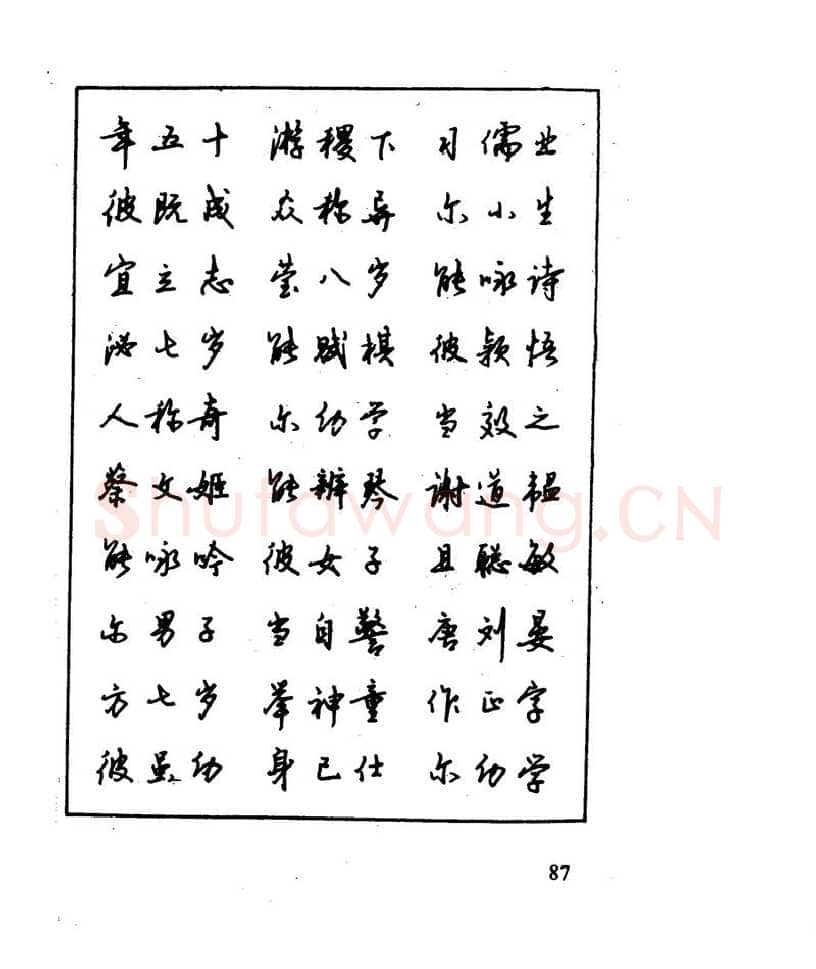 年五十 游稷下 习儒业
彼既成 众称异 尔小生
宜立志 莹八岁 能咏诗
泌七岁 能赋棋 彼颖悟
人称奇 尔幼学 当效之
蔡文姬 能辨琴 谢道韫
shufawang.CN
能咏吟 彼女子 且聪敏
尔男子 当自警 唐刘晏
方七岁 举神童 作正字
彼虽幼 身已仕 尔幼学
87